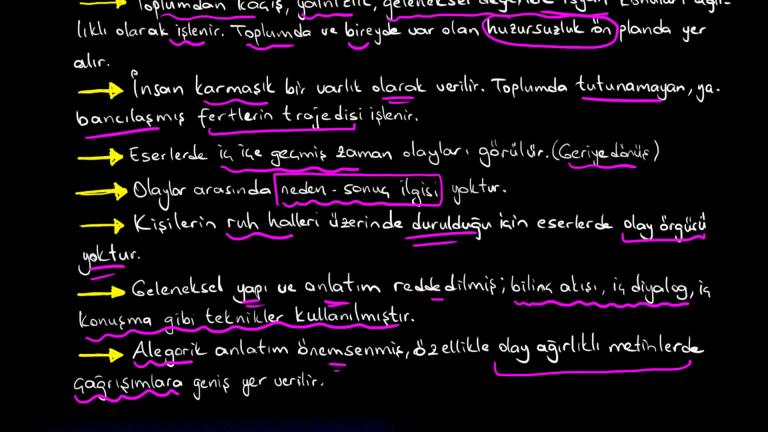 Toplumdan kaçış, yalnızlık, geleneksel değerlere isyan konuları ağır-
lıklı olarak işlenir. Toplumda ve bireyde var olan huzursuzluk ön planda yer
alır.
İnsan karmaşık bir varlık olarak verilir. Toplumda tutunamayan, ya-
bancılaşmış fertlerin trajedisi işlenir.
Eserlerde iç içe geçmiş zaman olayları görülür. (Geriye dönüş)
Olaylar arasında neden-sonuç ilgisi yoktur.
Kişilerin ruh halleri üzerinde durulduğu için eserlerde olay örgüsü
yoktur.
Geleneksel yapı ve anlatım reddedilmiş; bilinç akışı, iç diyalog, iç
konuşma gibi teknikler kullanılmıştır.
Alegorik anlatım önemsenmiş, özellikle olay ağırlıklı metinlerde
çağrışımlara geniş yer verilir.